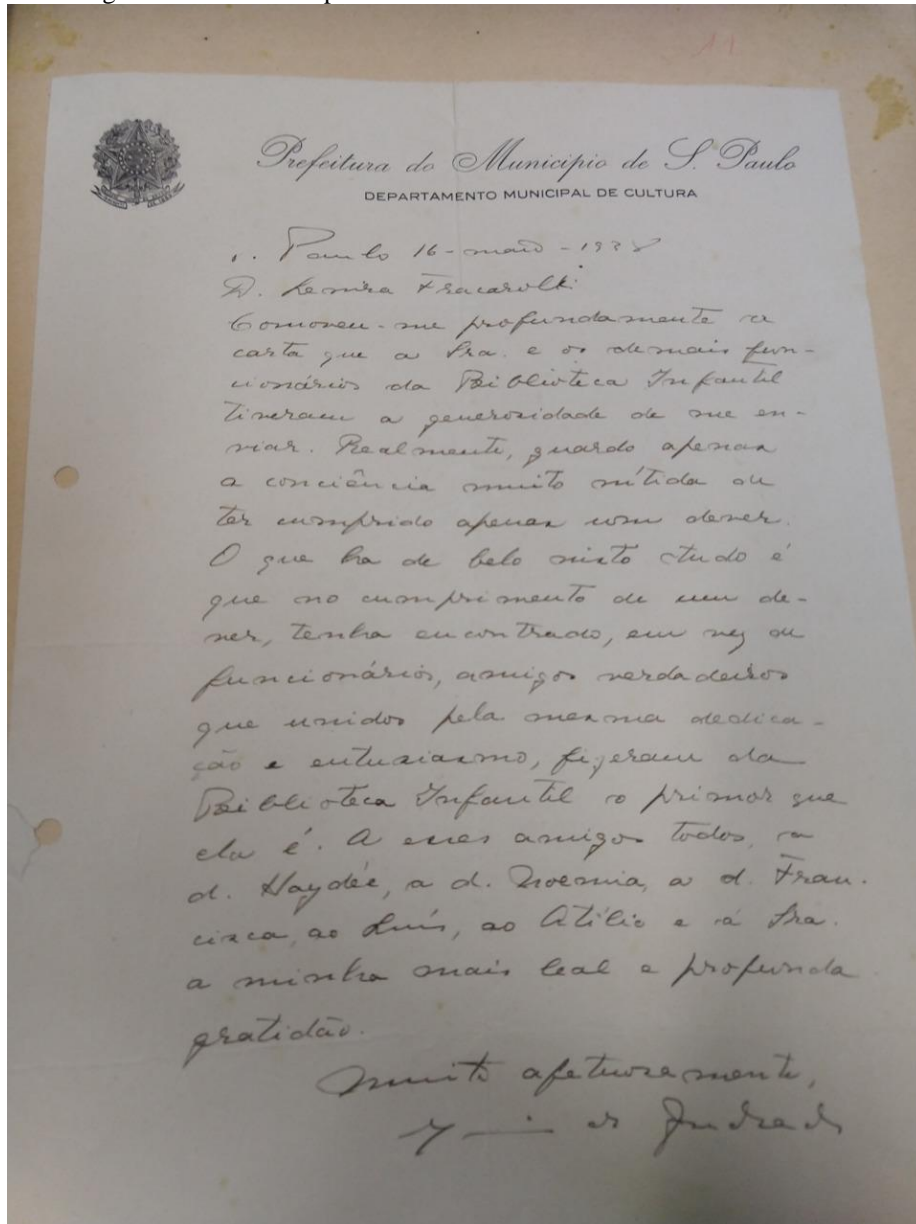 11
Prefeitura do Municipio de S. Paulo
DEPARTAMENTO MUNICIPAL DE CULTURA
S. Paulo 16-maio-1938
D. Lenira Fracarolli
Comoveu-me profundamente a
carta que a Sra. e os demais fun-
cionários da Biblioteca Infantil
tiveram a generosidade de me en-
viar. Realmente, guardo apenas
a conciência muito nítida de
ter cumprido apenas um dever.
O que ha de belo nisto tudo é
que no cumprimento de um de-
ver, tenha encontrado, em vez de
funcionários, amigos verdadeiros
que unidos pela mesma dedica-
ção e entusiasmo, fizeram da
Biblioteca Infantil o primor que
ela é. A esses amigos todos, a
d. Haydée, a d. Noemia, a d. Fran-
cisca, ao Luís, ao Atílio e á Sra.
a minha mais leal e profunda
gratidão.
Muito afetuosamente,
de Andrade